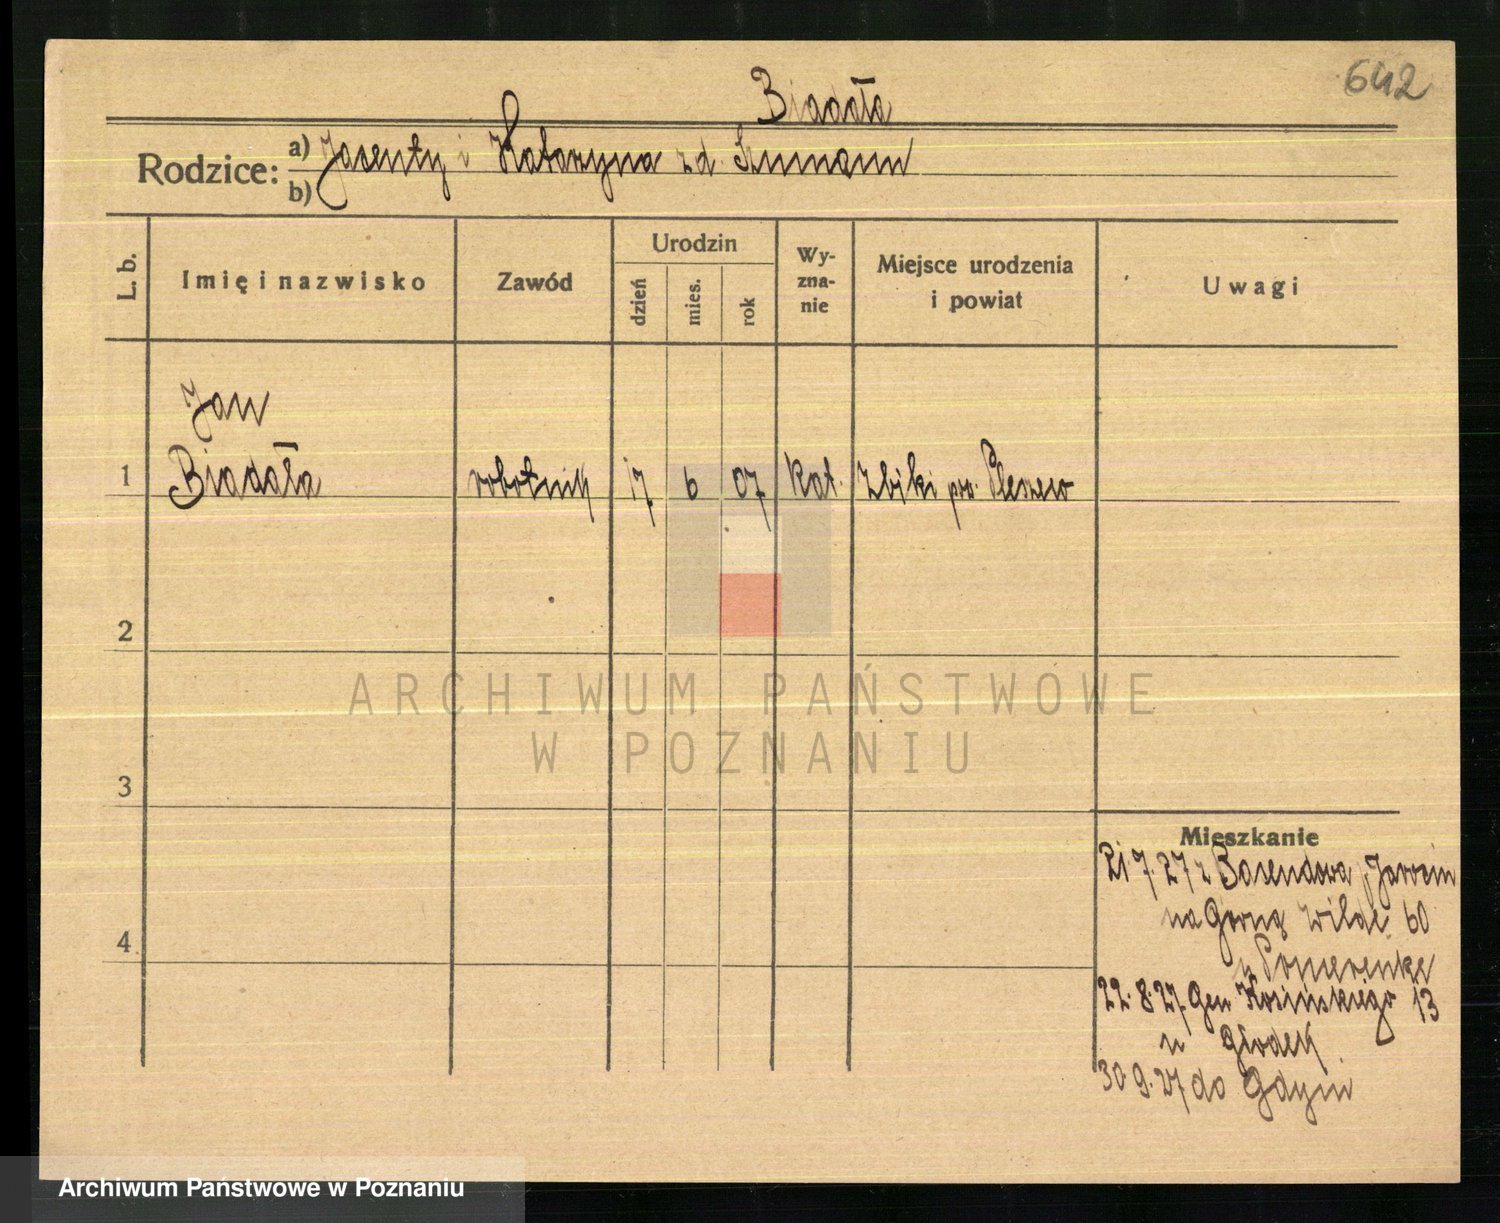 642
Biadała
Rodzice: a) Jacenty i Katarzyna z d. Szumann
b)
L. b. Imię i nazwisko Zawód Urodzin dzień mies. rok Wyznanie Miejsce urodzenia i powiat Uwagi
Jan
1 Biadała robotnik 17 6 07 kat. Zbiki pow. Pleszew
2
ARCHIWUM PAŃSTWOWE
W POZNANIU
3
Mieszkanie
21 7.27 z Jarocin
na Górną Wildę 60
u Pomerenke
4
22.8.27 Gen Kosińskiego 13
u Głodek
30.9.27 do Gdyni
Archiwum Państwowe w Poznaniu